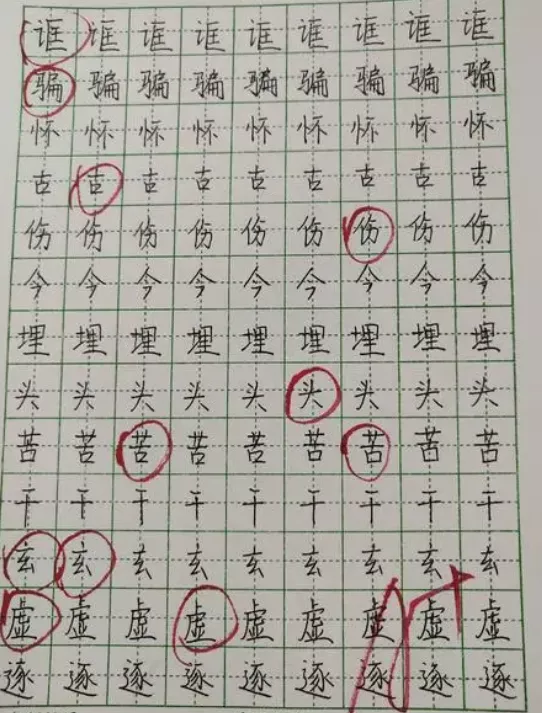 诓诓诓诓诓诓诓诓诓
骗骗骗骗骗骗骗骗骗
怀怀怀怀怀怀怀怀怀
古古古古古古古古古
伤伤伤伤伤伤伤伤伤
今今今今今今今今今
埋埋埋埋埋埋埋埋埋
头头头头头头头头头
苦苦苦苦苦苦苦苦苦
干干干干干干干干干
玄玄玄玄玄玄玄玄玄
虚虚虚虚虚虚虚虚虚
逐逐逐逐逐逐逐逐逐